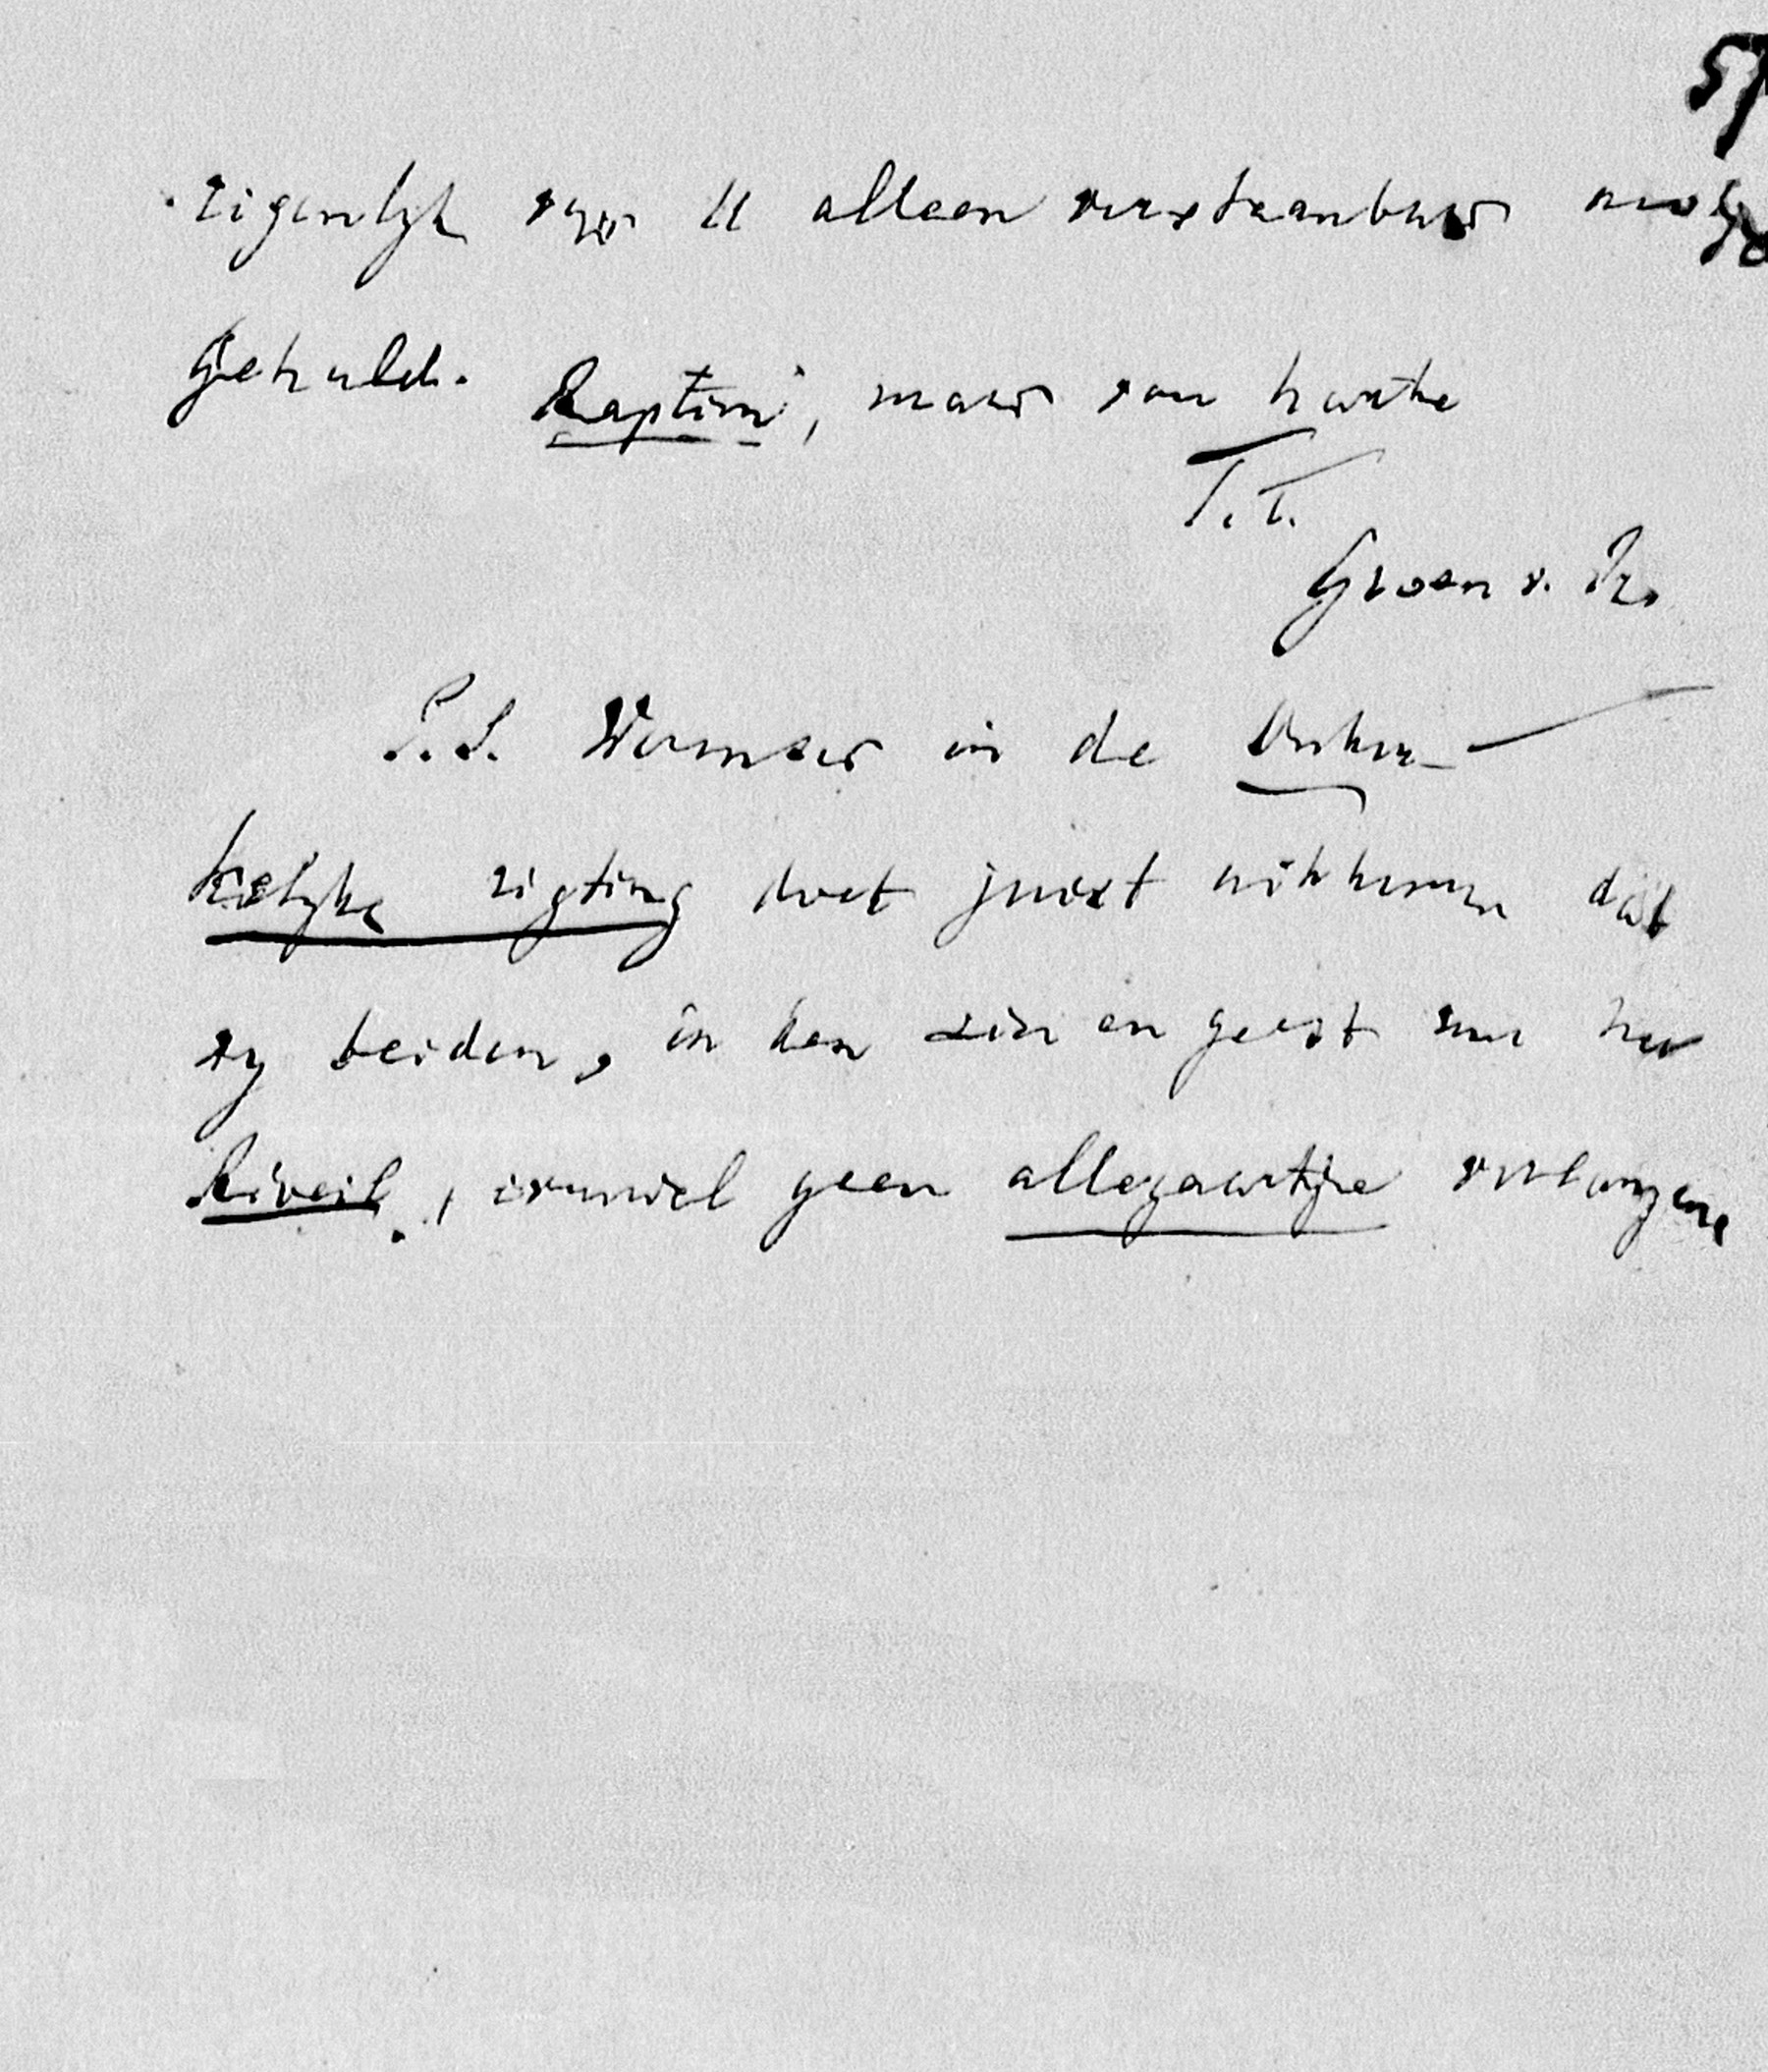 57
Eigenlyk voor U alleen verstaanbaar
Geduld. Raptim, maar van harte
T.T.
Groen v. Pr.
P.S. Wormser in de
kelyke rigting doet juist uitkomen dat
zy beiden, in den zin en geest van het
Réveil, evenwel geen allegaartje verlangen